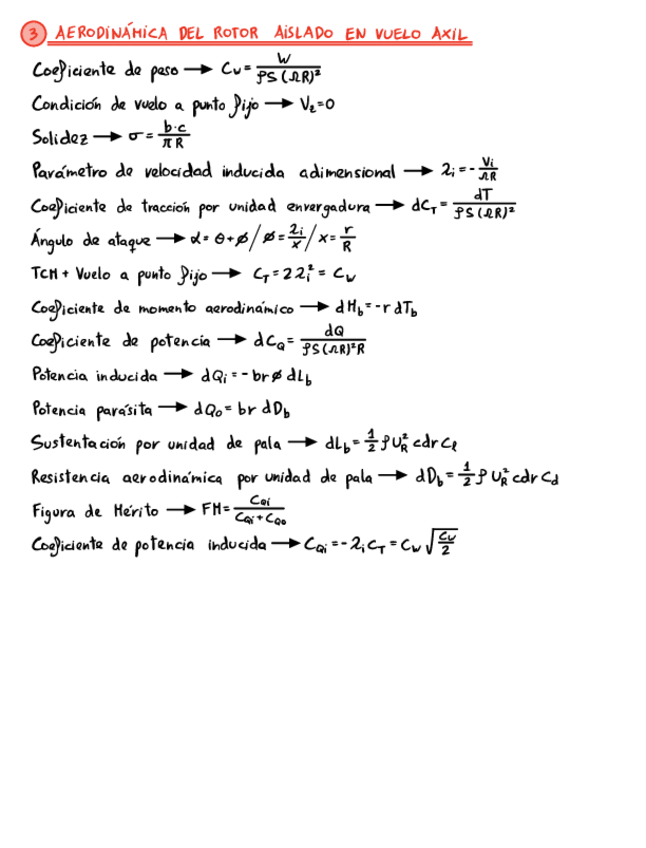 3 AERODINÁMICA DEL ROTOR AISLADO EN VUELO AXIL
Coeficiente de peso → Cw = W / ρS(ΩR)²
Condición de vuelo a punto fijo → Vz=0
Solidez → σ = b·c / πR
Parámetro de velocidad inducida adimensional → λi = - Vi / ΩR
Coeficiente de tracción por unidad envergadura → dCT = dT / ρS(ΩR)²
Ángulo de ataque → α = θ+ø / ø = λi/x / x = r/R
TCM + Vuelo a punto fijo → CT = 2λi² = Cw
Coeficiente de momento aerodinámico → dMb = -r dTb
Coeficiente de potencia → dCQ = dQ / ρS(ΩR)²R
Potencia inducida → dQi = - br ø dLb
Potencia parásita → dQo = br dDb
Sustentación por unidad de pala → dLb = 1/2 ρ UR² cdr Cl
Resistencia aerodinámica por unidad de pala → dDb = 1/2 ρ UR² cdr Cd
Figura de Mérito → FM = CQi / CQi + CQo
Coeficiente de potencia inducida → CQi = -λi CT = Cw √(Cw/2)